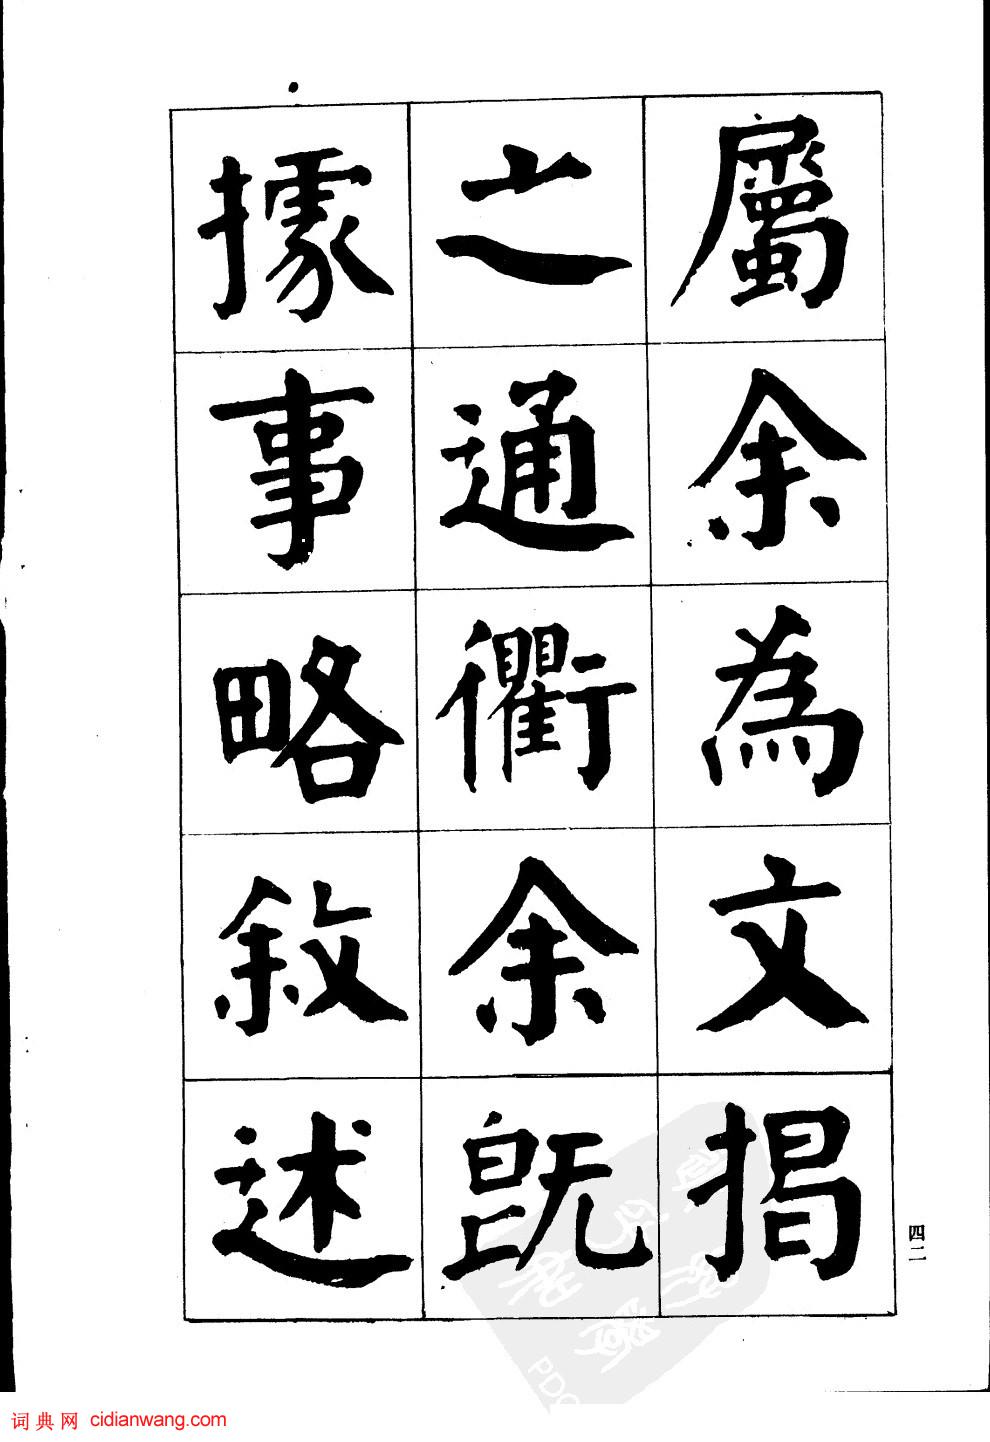 屬余為文揭
之通衢余旣
據事略敘述
四二
词典网 cidianwang.com